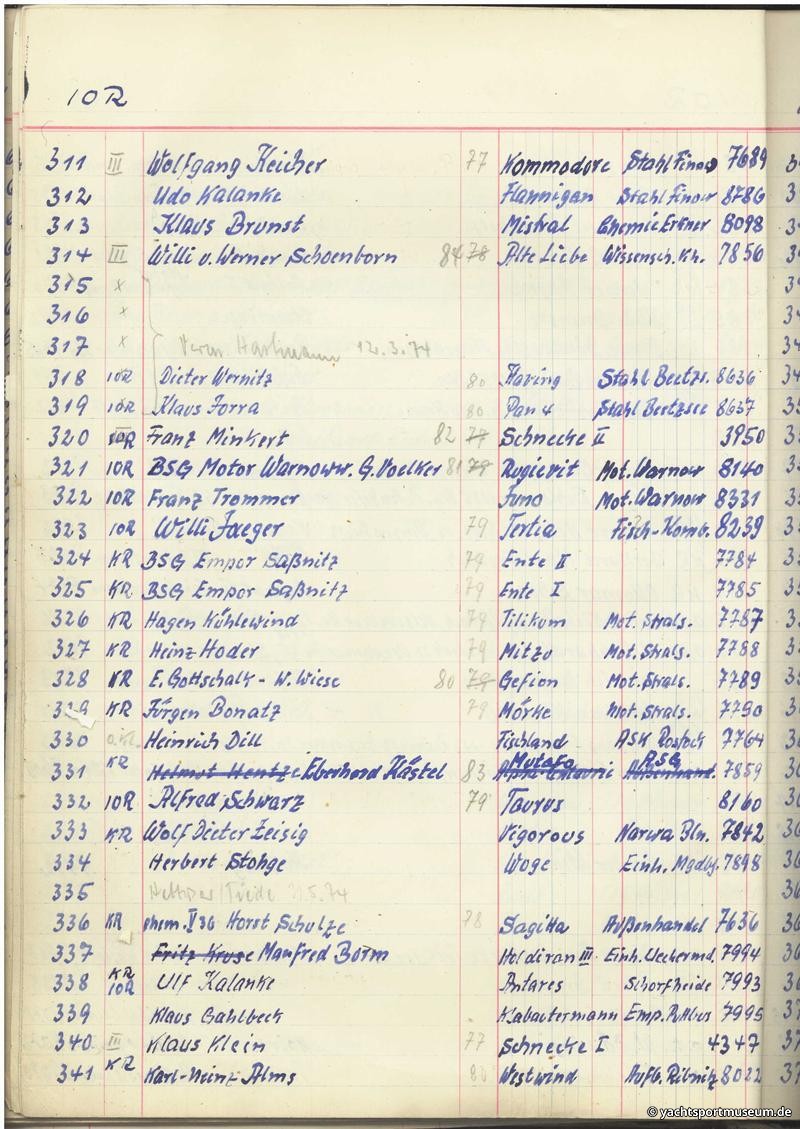 10R
311 III Wolfgang Reicher 77 Kommodore Stahl Finow 7689
312 Udo Kalanke Flannigan Stahl Finow 8786
313 Klaus Brunst Mistral Chemie Erkner 8098
314 III Willi u. Werner Schoenborn 84 78 Alte Liebe Wissensch. Kh. 7856
315 x
316 x
317 x Hartmann 12.3.74
318 10R Dieter Wernitz 80 Having Stahl Beetzs. 8636
319 10R Klaus Forra 80 Pan 4 Stahl Beetzsee 8637
320 10R Franz Minkert 82 79 Schnecke II 3950
321 10R BSG Motor Warnoww. G. Voelker 81 79 Rugievit Mot. Warnow 8140
322 10R Franz Trommer Juno Mot. Warnow 8331
323 10R Willi Jaeger 79 Tertia Fisch-Komb. 8239
324 KR BSG Empor Saßnitz 79 Ente II 7784
325 KR BSG Empor Saßnitz 79 Ente I 7785
326 KR Hagen Kühlewind 79 Tilikum Mot. Strals. 7787
327 KR Heinz Hoder 79 Mitzu Mot. Strals. 7788
328 KR E. Gottschalk - W. Wiese 80 79 Gefion Mot. Strals. 7789
329 KR Jürgen Bonatz 79 Mörke Mot. Strals. 7790
330 Heinrich Dill Fischland ASK Rostock 7764
331 KR Helmut Hentze Eberhard Kästel 83 Mutafo ASG Außenhand. 7859
332 10R Alfred Schwarz 79 Taurus 8160
333 KR Wolf Dieter Zeisig Vigorous Narwa Bln. 7842
334 Herbert Stohge Woge Einh. Mgdbg. 7898
335 21.5.74
336 KR ehem. V36 Horst Schulze 78 Sagitta Außenhandel 7636
337 Fritz Kruse Manfred Borm III Einh. Ueckermd. 7994
338 KR 10R Ulf Kalanke Antares Schorfheide 7993
339 Klaus Gahlbeck Klabautermann Emp. Putbus 7995
340 III Klaus Klein 77 Schnecke I 4347
341 KR Karl-Heinz Alms 80 Westwind Aufb. Ribnitz 8022
© yachtsportmuseum.de